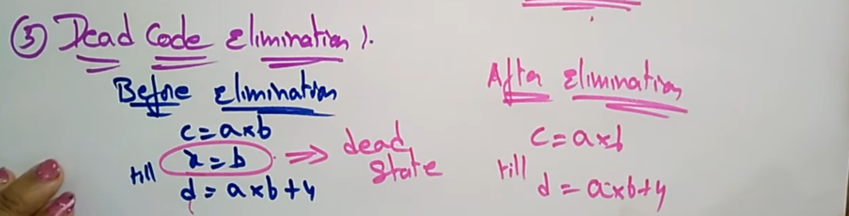 ③ Dead Code Elimination).
Before elimination
c = a×b
x = b ⇒ dead state
till
d = a×b+4
After elimination
c = a×b
till
d = a×b+4